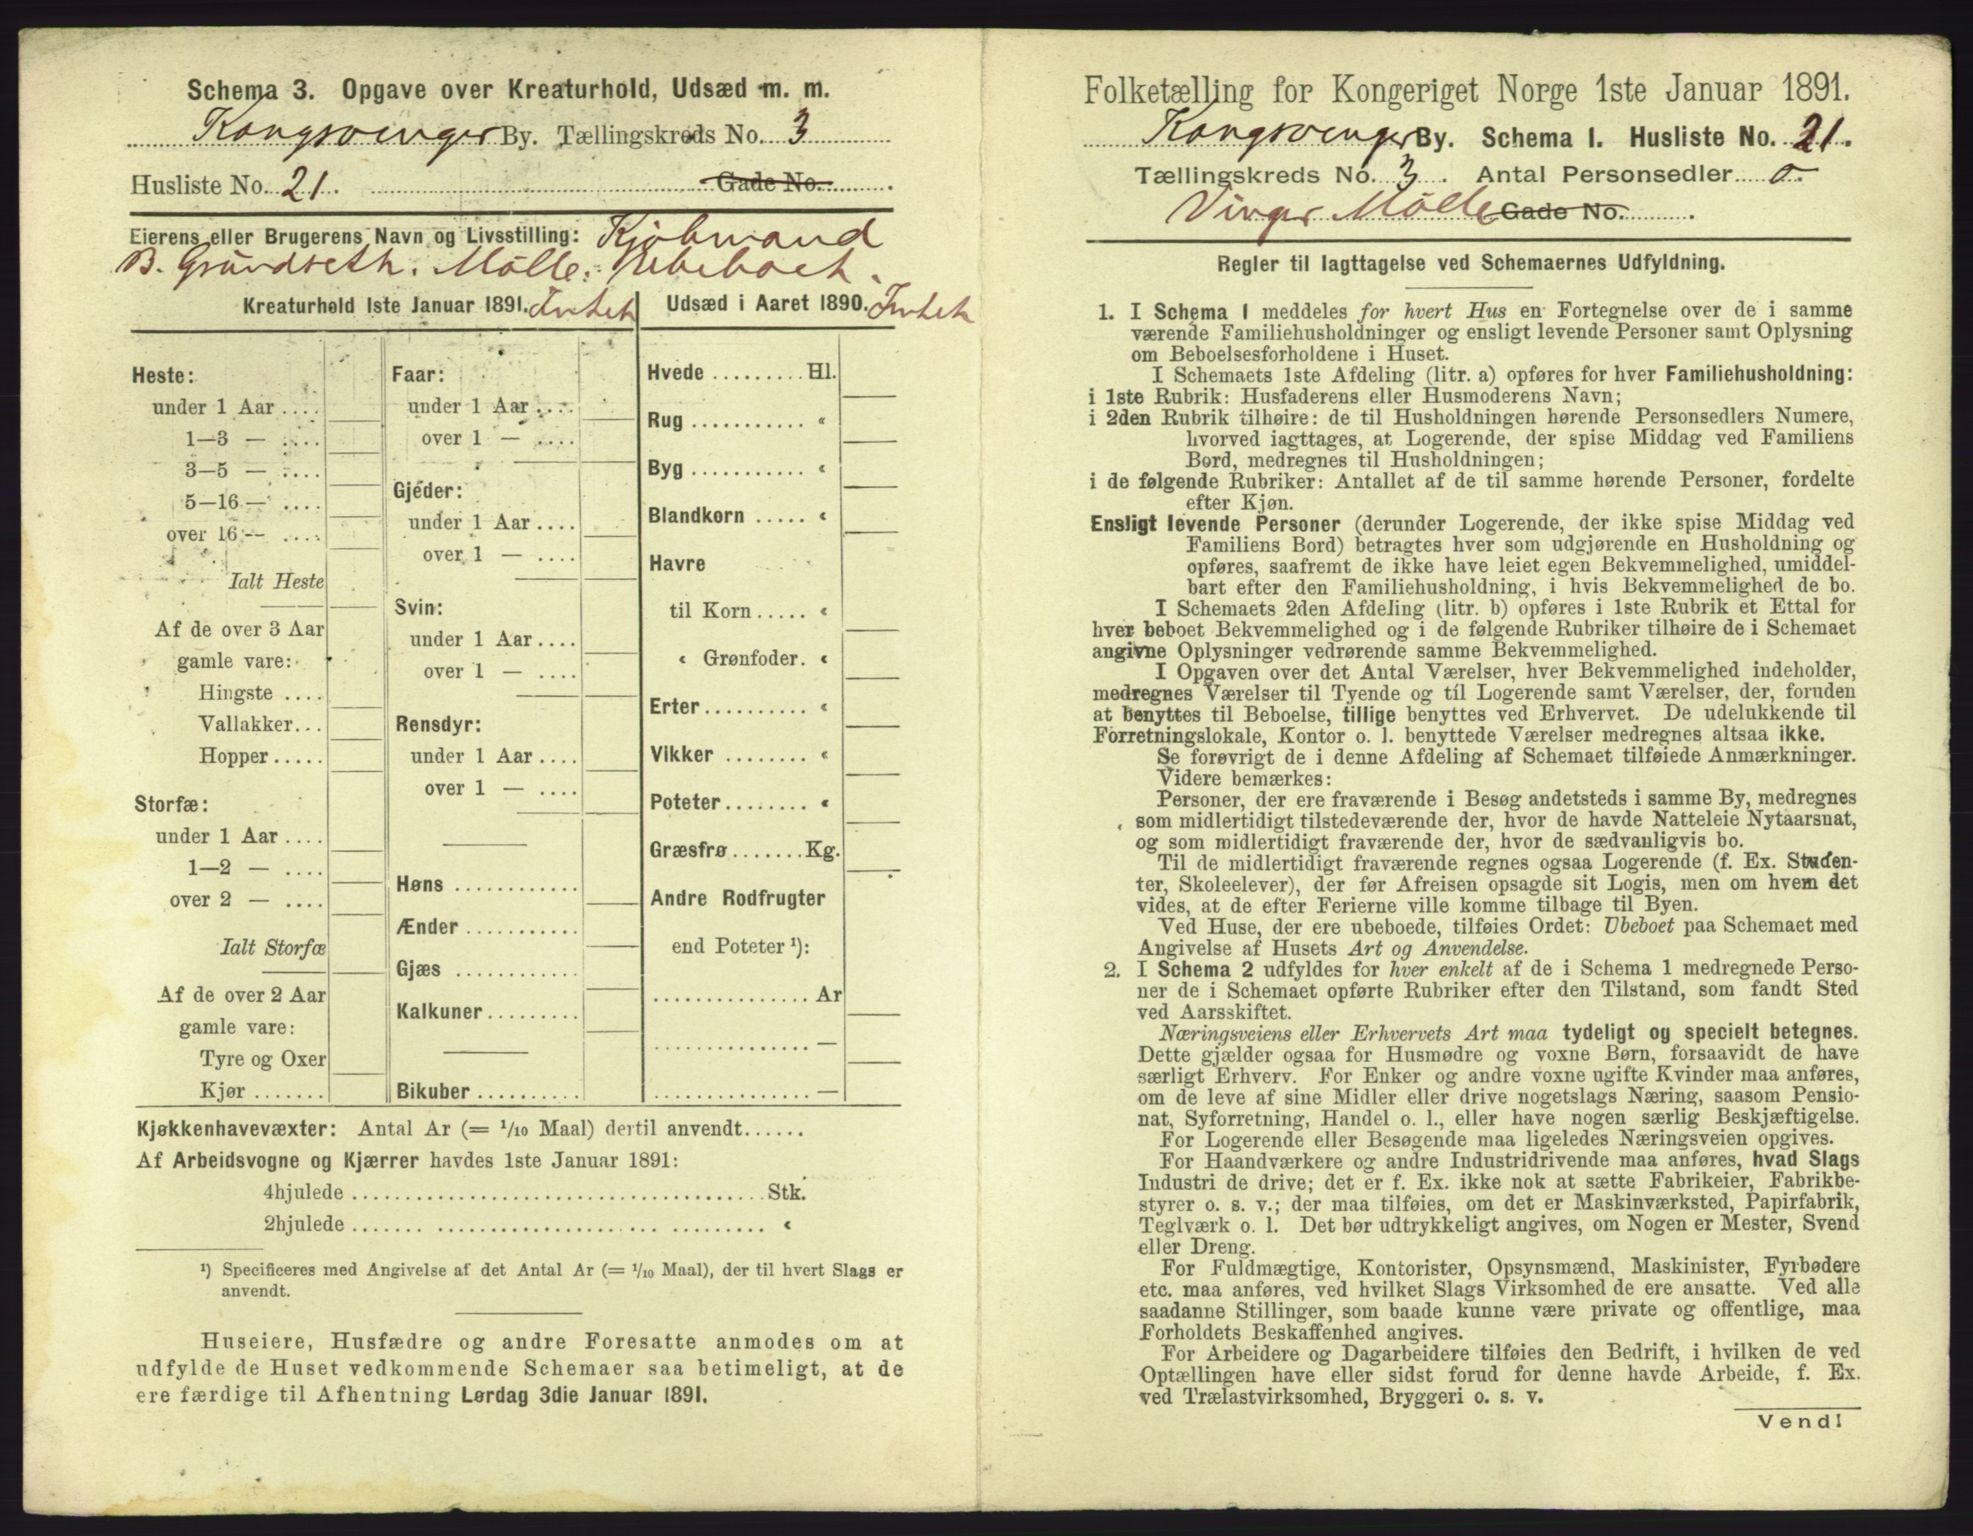 Schema 3. Opgave over Kreaturhold, Udsæd m. m.
Kongsvenger By. Tællingskreds No. 3
Husliste No. 21. Gade No.
Eierens eller Brugerens Navn og Livsstilling: Kjøbmand
B. Grundseth. Mølle. Ubeboet.
Kreaturhold 1ste Januar 1891. Intet
Heste:
under 1 Aar ....
1—3 — ....
3—5 — ....
5—16 — ....
over 16 — ....
Ialt Heste
Af de over 3 Aar
gamle vare:
Hingste ....
Vallakker...
Hopper.....
Storfæ:
under 1 Aar ....
1—2 — ....
over 2 — ....
Ialt Storfæ
Af de over 2 Aar
gamle vare:
Tyre og Oxer
Kjør .......
Faar:
under 1 Aar ....
over 1 — ....
Gjeder:
under 1 Aar ....
over 1 — ....
Svin:
under 1 Aar ....
over 1 — ....
Rensdyr:
under 1 Aar ....
over 1 — ....
Høns ............
Ænder ...........
Gjæs ............
Kalkuner.........
Bikuber..........
Udsæd i Aaret 1890. Intet
Hvede ......... Hl.
Rug ........... «
Byg ........... «
Blandkorn ..... «
Havre
til Korn ..... «
« Grønfoder. «
Erter.......... «
Vikker ........ «
Poteter........ «
Græsfrø.......Kg.
Andre Rodfrugter
end Poteter ¹):
............... Ar
............... —
............... —
Kjøkkenhavevæxter: Antal Ar (= 1/10 Maal) dertil anvendt......
Af Arbeidsvogne og Kjærrer havdes 1ste Januar 1891:
4hjulede ........................................ Stk.
2hjulede ........................................ «
¹) Specificeres med Angivelse af det Antal Ar (= 1/10 Maal), der til hvert Slags er
anvendt.
Huseiere, Husfædre og andre Foresatte anmodes om at
udfylde de Huset vedkommende Schemaer saa betimeligt, at de
ere færdige til Afhentning Lørdag 3die Januar 1891.
Folketælling for Kongeriget Norge 1ste Januar 1891.
Kongsvenger By. Schema I. Husliste No. 21.
Tællingskreds No. 3. Antal Personsedler 0.
Vinger Mølle Gade No. .
Regler til Iagttagelse ved Schemaernes Udfyldning.
1. I Schema 1 meddeles for hvert Hus en Fortegnelse over de i samme
værende Familiehusholdninger og ensligt levende Personer samt Oplysning
om Beboelsesforholdene i Huset.
I Schemaets 1ste Afdeling (litr. a) opføres for hver Familiehusholdning:
i 1ste Rubrik: Husfaderens eller Husmoderens Navn;
i 2den Rubrik tilhøire: de til Husholdningen hørende Personsedlers Numere,
hvorved iagttages, at Logerende, der spise Middag ved Familiens
Bord, medregnes til Husholdningen;
i de følgende Rubriker: Antallet af de til samme hørende Personer, fordelte
efter Kjøn.
Ensligt levende Personer (derunder Logerende, der ikke spise Middag ved
Familiens Bord) betragtes hver som udgjørende en Husholdning og
opføres, saafremt de ikke have leiet egen Bekvemmelighed, umiddel-
bart efter den Familiehusholdning, i hvis Bekvemmelighed de bo.
I Schemaets 2den Afdeling (litr. b) opføres i 1ste Rubrik et Ettal for
hver beboet Bekvemmelighed og i de følgende Rubriker tilhøire de i Schemaet
angivne Oplysninger vedrørende samme Bekvemmelighed.
I Opgaven over det Antal Værelser, hver Bekvemmelighed indeholder,
medregnes Værelser til Tyende og til Logerende samt Værelser, der, foruden
at benyttes til Beboelse, tillige benyttes ved Erhvervet. De udelukkende til
Forretningslokale, Kontor o. l. benyttede Værelser medregnes altsaa ikke.
Se forøvrigt de i denne Afdeling af Schemaet tilføiede Anmærkninger.
Videre bemærkes:
Personer, der ere fraværende i Besøg andetsteds i samme By, medregnes
som midlertidigt tilstedeværende der, hvor de havde Natteleie Nytaarsnat,
og som midlertidigt fraværende der, hvor de sædvanligvis bo.
Til de midlertidigt fraværende regnes ogsaa Logerende (f. Ex. Studen-
ter, Skoleelever), der før Afreisen opsagde sit Logis, men om hvem det
vides, at de efter Ferierne ville komme tilbage til Byen.
Ved Huse, der ere ubeboede, tilføies Ordet: Ubeboet paa Schemaet med
Angivelse af Husets Art og Anvendelse.
2. I Schema 2 udfyldes for hver enkelt af de i Schema 1 medregnede Perso-
ner de i Schemaet opførte Rubriker efter den Tilstand, som fandt Sted
ved Aarsskiftet.
Næringsveiens eller Erhvervets Art maa tydeligt og specielt betegnes.
Dette gjælder ogsaa for Husmødre og voxne Børn, forsaavidt de have
særligt Erhverv. For Enker og andre voxne ugifte Kvinder maa anføres,
om de leve af sine Midler eller drive nogetslags Næring, saasom Pensio-
nat, Syforretning, Handel o. l., eller have nogen særlig Beskjæftigelse.
For Logerende eller Besøgende maa ligeledes Næringsveien opgives.
For Haandværkere og andre Industridrivende maa anføres, hvad Slags
Industri de drive; det er f. Ex. ikke nok at sætte Fabrikeier, Fabrikbe-
styrer o. s. v.; der maa tilføies, om det er Maskinværksted, Papirfabrik,
Teglværk o. l. Det bør udtrykkeligt angives, om Nogen er Mester, Svend
eller Dreng.
For Fuldmægtige, Kontorister, Opsynsmænd, Maskinister, Fyrbødere
etc. maa anføres, ved hvilket Slags Virksomhed de ere ansatte. Ved alle
saadanne Stillinger, som baade kunne være private og offentlige, maa
Forholdets Beskaffenhed angives.
For Arbeidere og Dagarbeidere tilføies den Bedrift, i hvilken de ved
Optællingen have eller sidst forud for denne havde Arbeide, f. Ex.
ved Trælastvirksomhed, Bryggeri o. s. v.
Vend!